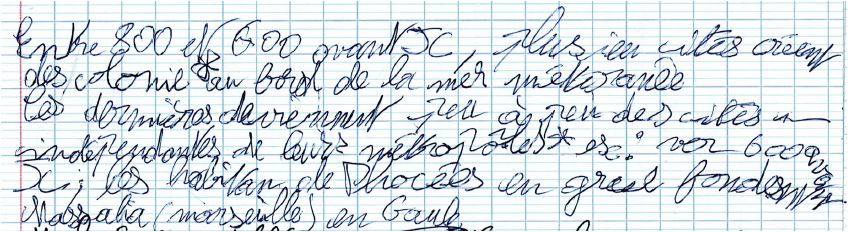 Entre 800 et 600 avant JC, plusieu cités créent
des colonie* au bord de la mer méteranée
Ces dernières deviennent peu à peu des cités
indépendantes de leurs métropoles* ex: ver 600 avant
JC, les habitan de Phocées en grese fondent
Massalia (marseille) en Gaule